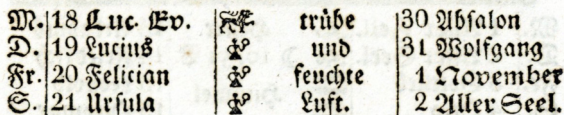 M. 18 Luc. Ev. trübe 30 Absalon
D. 19 Lucius und 31 Wolfgang
Fr. 20 Felician feuchte 1 November
S. 21 Ursula Luft. 2 Aller Seel.